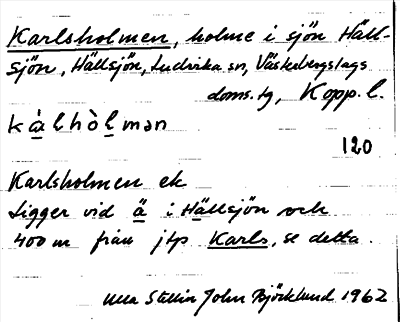 Karlsholmen, holme i sjön Häll-
sjön, Hällsjön, Ludvika sn, Västerbergslags
doms. tg, Kopp. l.
kàlhòlmən
120
Karlsholmen ek
Ligger vid ä i Hällsjön och
400 m från jtp Karls, se detta.
Ulla Stellin John Björklund 1962